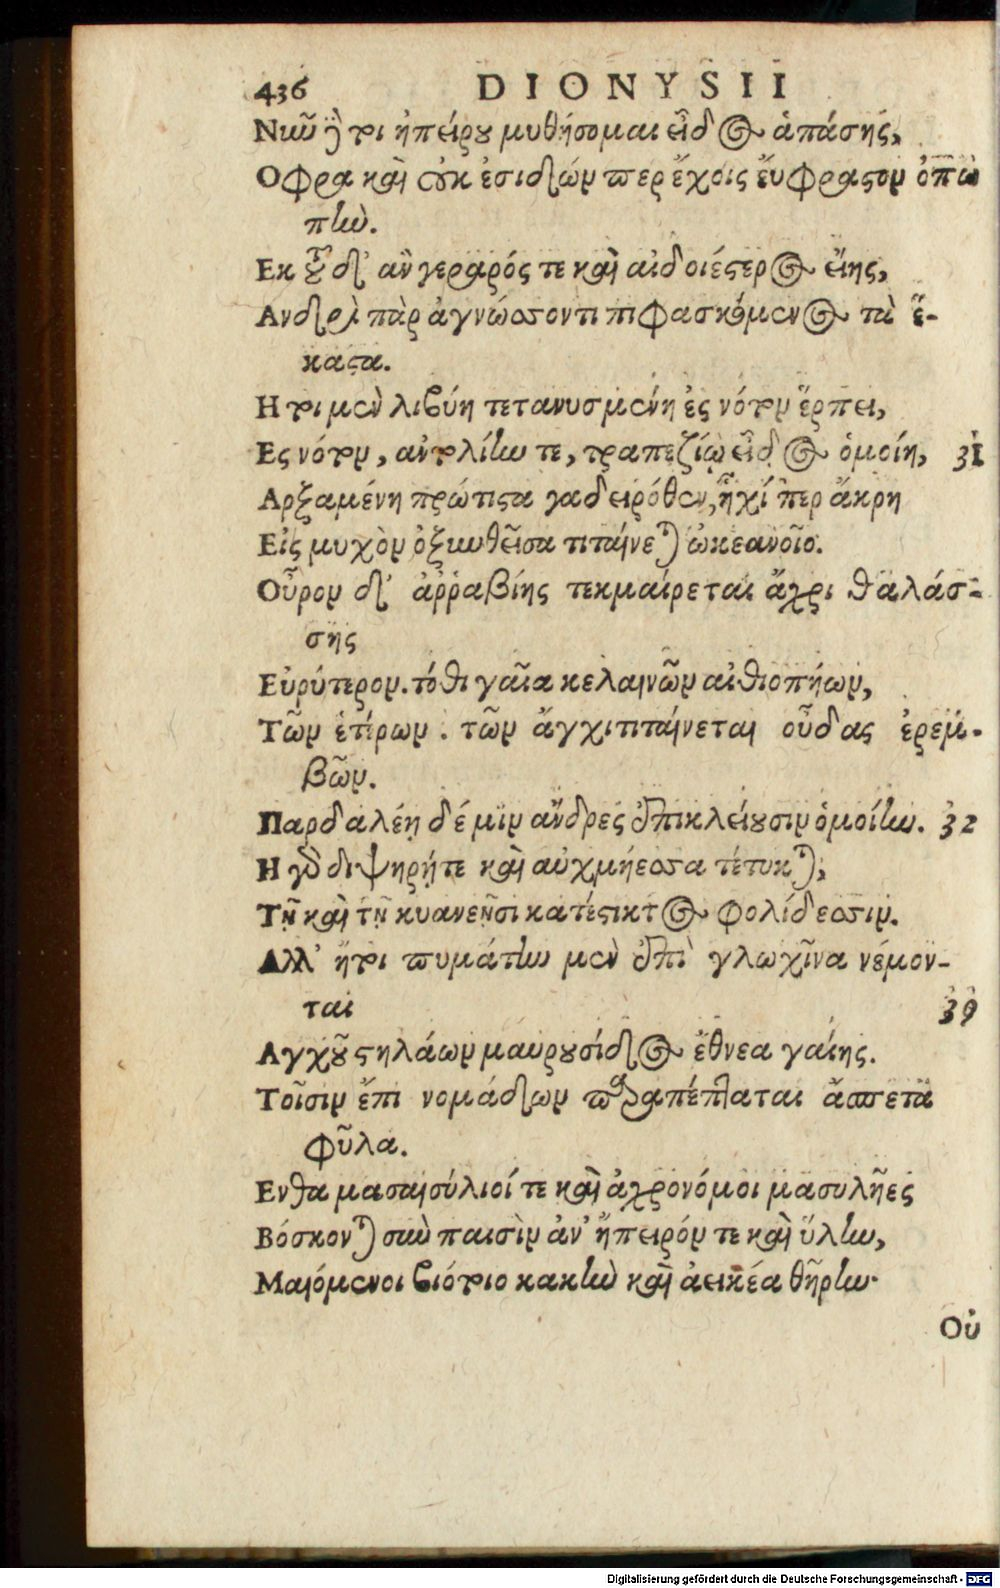 436 DIONYSII
Νῦν δή τοι ἠπείρου μυθήσομαι εἶδος ἁπάσης,
Οφρα καὶ οὐκ ἐσιδών περ ἔχοις ἔυφραστον ὀπω
πήν.
Εκ τοῦ δ' ἂν γεραρός τε καὶ αἰδοιέστερος εἴης,
Ανδρὶ παρ ἀγνώσσοντι πιφασκόμενος τὰ ἕ-
καστα.
Η τοι μὲν λιβύη τετανυσμένη ἐς νότον ἕρπει,
Ες νότον, ἀντολίην τε, τραπεζίῳ εἶδος ὁμοίη, 31
Αρξαμένη πρώτιστα γαδειρόθεν, ἧχί περ ἄκρη
Εἰς μυχὸν ὀξυνθεῖσα τιταίνεται ὠκεανοῖο.
Οὖρον δ' ἀῤῥαβίης τεκμαίρεται ἄχρι θαλάσ-
σης
Εὐρύτερον. τόθι γαῖα κελαινῶν αἰθιοπήων,
Τῶν ἑτέρων . τῶν ἄγχι τιταίνεται οὖδας ἐρεμ-
βῶν.
Παρδαλέῃ δέ μιν ἄνδρες ἐπικλείουσιν ὁμοίην. 32
Η γὰρ διψηρή τε καὶ αὐχμήεσσα τέτυκται,
Τῇ καὶ τῇ κυανεῇσι κατάστικτος φολίδεσσιν.
Αλλ' ἤτοι πυμάτην μὲν ἐπὶ γλωχῖνα νέμον-
ται 39
Αγχοῦ στηλάων μαυρουσίδος ἔθνεα γαίης.
Τοῖσιν ἔπι νομάδων παραπέπταται ἄσπετα
φῦλα.
Ενθα μασαισύλιοί τε καὶ ἀγρονόμοι μασυλῆες
Βόσκονται σὺν παισὶν ἀν' ἤπειρόν τε καὶ ὕλην,
Μαιόμενοι βιότοιο κακὴν καὶ ἀεικέα θήρην·
Οὐ
Digitalisierung gefördert durch die Deutsche Forschungsgemeinschaft - DFG